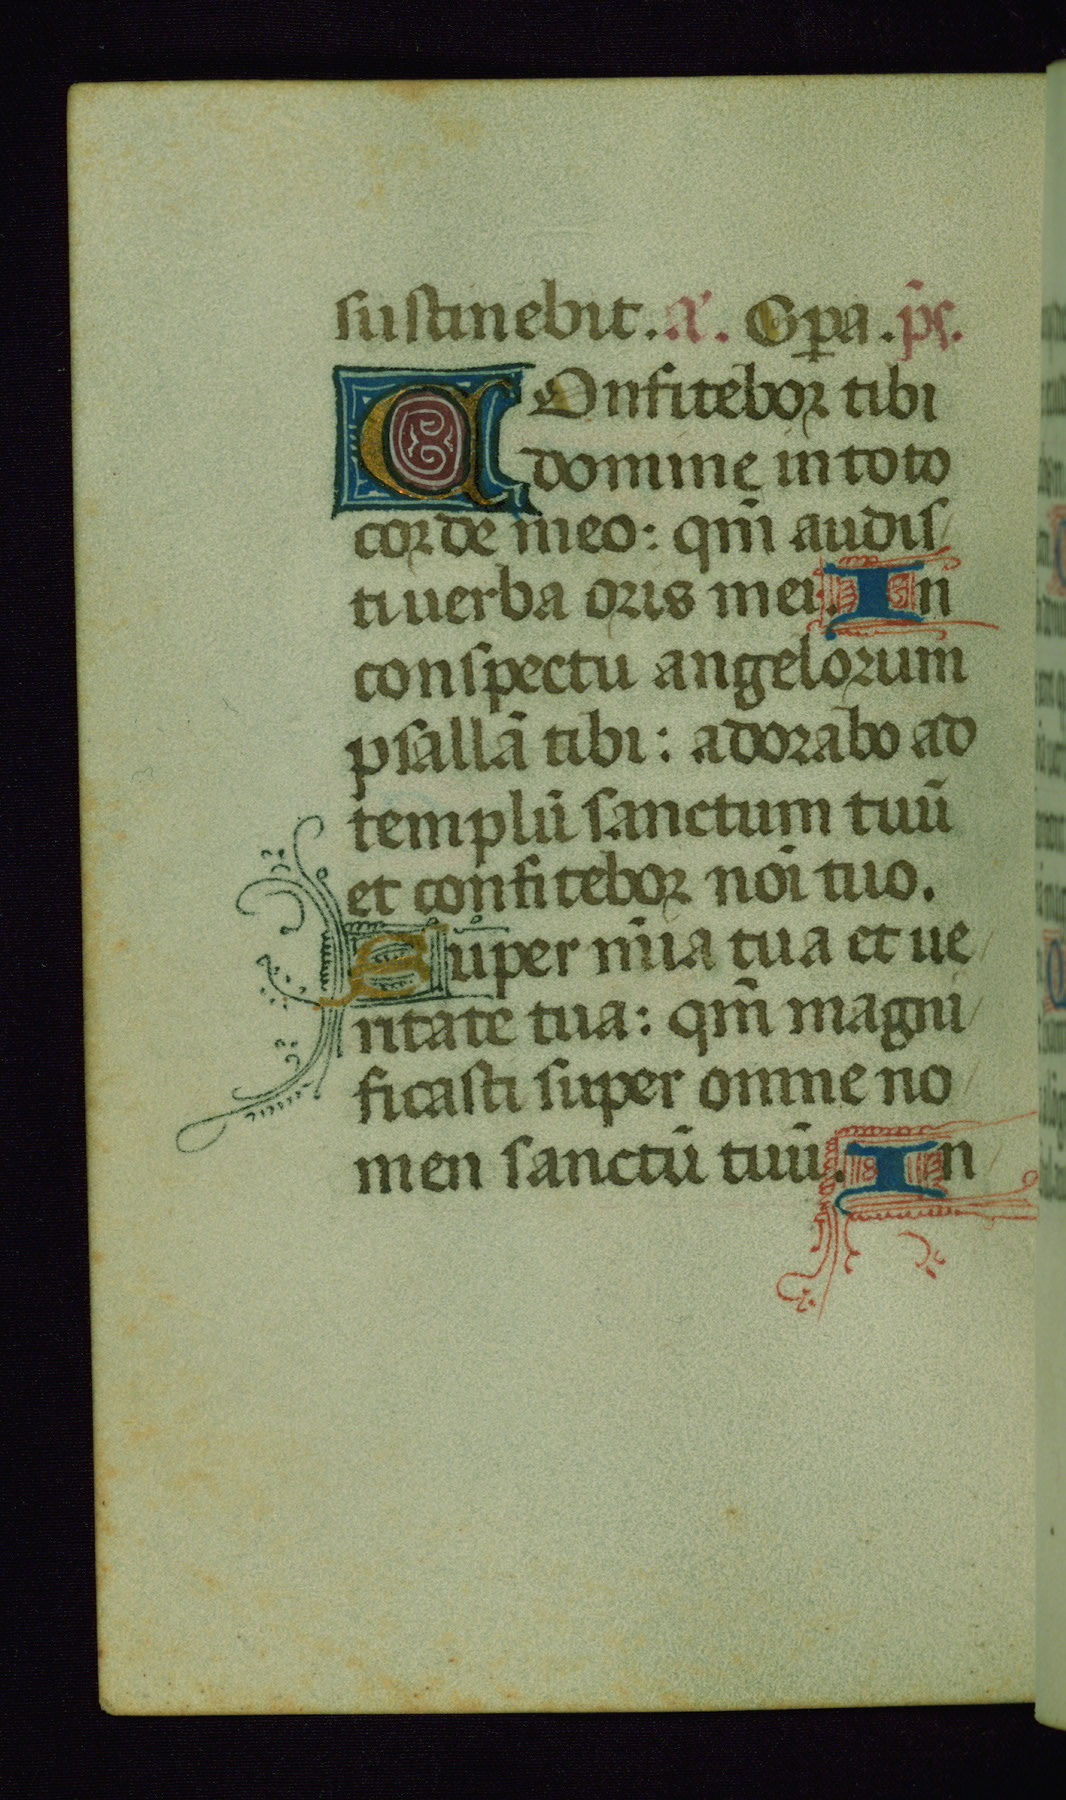 sustinebit. a. Opa. ps.
COnfitebor tibi
domine in toto
corde meo: qm̄ audis
ti uerba oris mei. In
conspectu angelorum
psallā tibi: adorabo ad
templū sanctum tuū
et confitebor nōi tuo.
Super mīa tua et ue
ritate tua: qm̄ magni
ficasti super omne no
men sanctū tuū. In